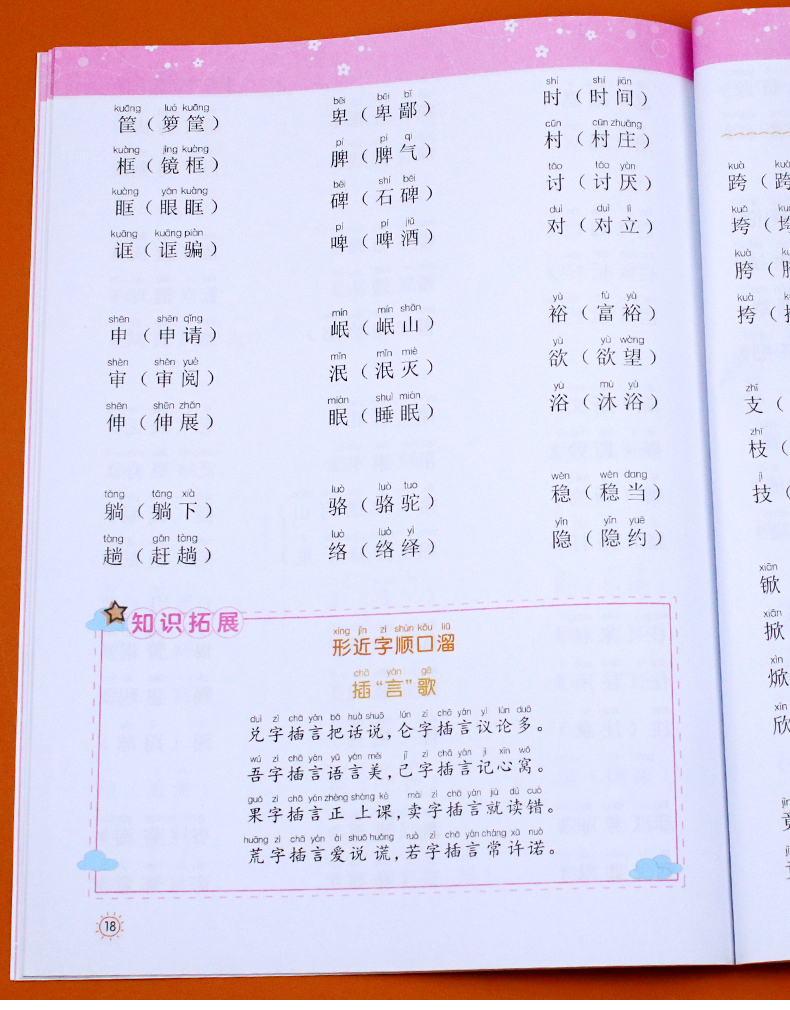 kuāng luó kuāng
筐（箩筐）
kuàng jìng kuàng
框（镜框）
kuàng yǎn kuàng
眶（眼眶）
kuāng kuāng piàn
诓（诓骗）
shēn shēn qǐng
申（申请）
shěn shěn yuè
审（审阅）
shēn shēn zhǎn
伸（伸展）
tǎng tǎng xià
躺（躺下）
tàng gǎn tàng
趟（赶趟）
bēi bēi bǐ
卑（卑鄙）
pí pí qi
脾（脾气）
bēi shí bēi
碑（石碑）
pí pí jiǔ
啤（啤酒）
mín mín shān
岷（岷山）
mǐn mǐn miè
泯（泯灭）
mián shuì mián
眠（睡眠）
luò luò tuo
骆（骆驼）
luò luò yì
络（络绎）
shí shí jiān
时（时间）
cūn cūn zhuāng
村（村庄）
tǎo tǎo yàn
讨（讨厌）
duì duì lì
对（对立）
yù fù yù
裕（富裕）
yù yù wàng
欲（欲望）
yù mù yù
浴（沐浴）
wěn wěn dang
稳（稳当）
yǐn yǐn yuē
隐（隐约）
知识拓展
xíng jìn zì shùn kǒu liū
形近字顺口溜
chā yán gē
插“言”歌
duì zì chā yán bǎ huà shuō lún zì chā yán yì lùn duō
兑字插言把话说，仑字插言议论多。
wú zì chā yán yǔ yán měi jǐ zì chā yán jì xīn wō
吾字插言语言美，己字插言记心窝。
guǒ zì chā yán zhèng shàng kè mài zì chā yán jiù dú cuò
果字插言正上课，卖字插言就读错。
huāng zì chā yán ài shuō huǎng ruò zì chā yán cháng xǔ nuò
荒字插言爱说谎，若字插言常许诺。
18
kuà
跨（跨
kuǎ
垮（垮
kuà
胯（胯
kuà
挎（
zhī
支（
zhī
枝（
jì
技（
xiān
锨
xiān
掀
xìn
焮
xīn
欣